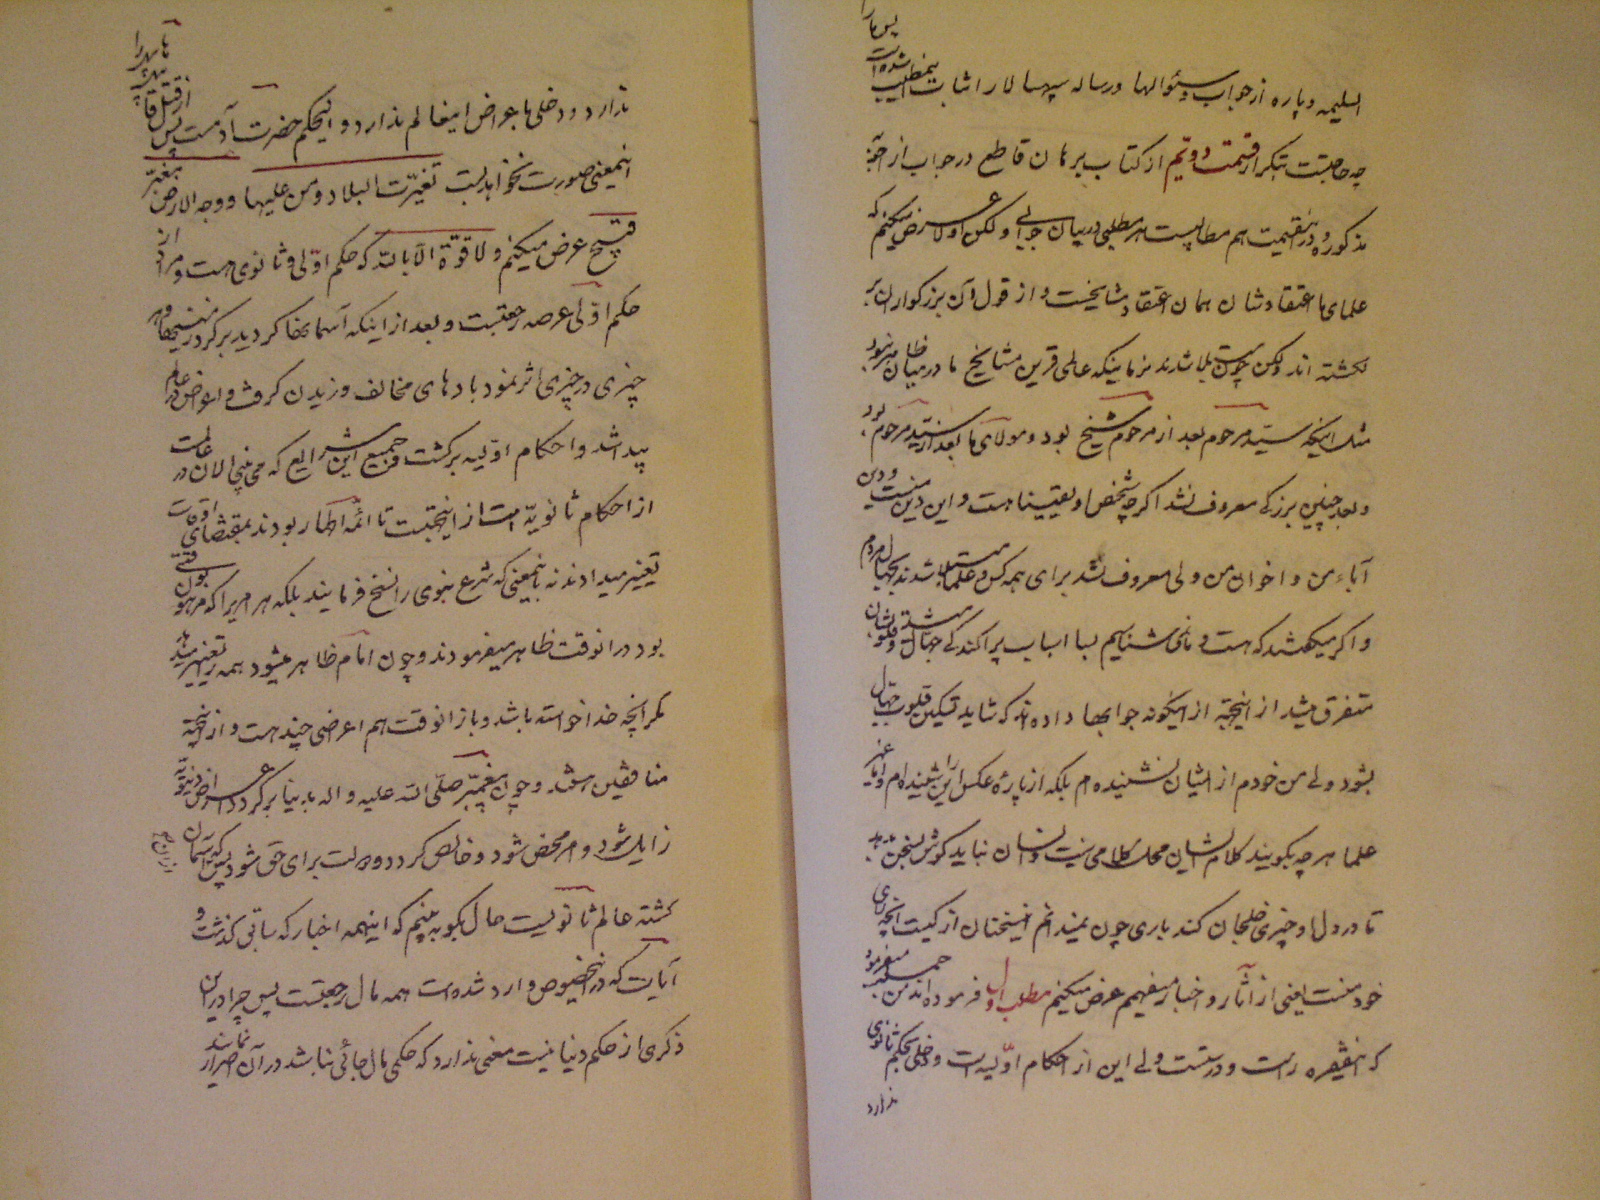 السلیمه و پاره از جواب و سئوالها و رساله سپهسالار اثبات اینمطلب شده است پس ما را
چه حاجتست بتکرار قسمت دویم از کتاب برهان قاطع در جواب از
مذکوره و در اینقسمت هم مطالبیست هر مطلبی در بیان جوابی و لکن اولا عرض میکنم که
علمای ما اعتقادشان همان اعتقاد مشایخست و از قول آن بزرگواران بر
نگشته اند ولکن چون مبتلا شدند بزمانیکه عالمی قرین مشایخ ما در میان ظاهر نبود
مثل اینکه سید مرحوم بعد از مرحوم شیخ بود و مولای ما بعد از سید مرحوم بود
و بعد چنین بزرگی معروف نشد اگرچه شخص او یقینا هست و این دین منست و دین
آباء من و اخوان من ولی معروف نشد برای همه کس و علما مبتلا شدند بجهال مردم
و اگر میگفتند که هست و ما نمی شناسیم بسا اسباب پراکندگی جهال میشد و قلوبشان
متفرق میشد از اینجهة از اینگونه جوابها داده اند که شاید تسکین قلوب جهال
بشود ولی من خودم از ایشان نشنیده ام بلکه از پاره عکس این را شنیده ام و
علما هر چه بگویند کلام ایشان محل کلامی نیست و انسان نباید گوش بسخن
تا در دل او چیزی خلجان کند باری چون نمیدانم این سخنان از کیست آنچه رای
خود منست یعنی از آثار و اخبار میفهمم عرض میکنم مطلب اول فرموده اند من
که اینفقره راست و درستست ولی این از احکام اولیه است و دخلی بحکم ثانوی
ندارد
ندارد و دخلی باعراض اینعالم ندارد و اینحکم حضرت آدمست پس از قتل قابیل هابیل را
اینمعنی صورت نخواهد بست تغیرت البلاد و من علیها و وجه الارض مغبر
قبیح عرض میکنم و لا قوة الا بالله که حکم اولی و ثانوی هست و مراد از
حکم اولی عرصه رجعتست و بعد از اینکه آسمان
چیزی در چیزی اثر نمود بادهای مخالف وزیدن گرفت و اعراض در عالم
پیدا شد و احکام اولیه برگشت و جمیع این شرایع که می بینی الان در
از احکام ثانویه است از اینجهتست تا ائمه اطهار بودند بمقتضای اوقات
تغییر میدادند نه باینمعنی که شرع نبوی را نسخ فرمایند بلکه هر امریرا که مرهون بوقتی
بود در انوقت ظاهر میفرمودند و چون امام ظاهر میشود همه را تغییر میدهد
مگر آنچه خدا خواسته باشد و باز انوقت هم اعراضی چند هست و از اینجهة
منافقین و چون پیغمبر صلی الله علیه و اله بدنیا برگردد اعراض دنیویه
زایل شود و امر محض شود و خالص گردد و دولت برای حق شود پس آسمان
گشته عالم ثانویست حال بگو ببینم که اینهمه اخبار که سابق گذشت و
آیات که در انخصوص وارد شده است همه مال رجعتست پس چرا در این
ذکری از حکم دنیا نیست معنی ندارد که حکمی مال جائی نباشد در آن اصرار نمایند